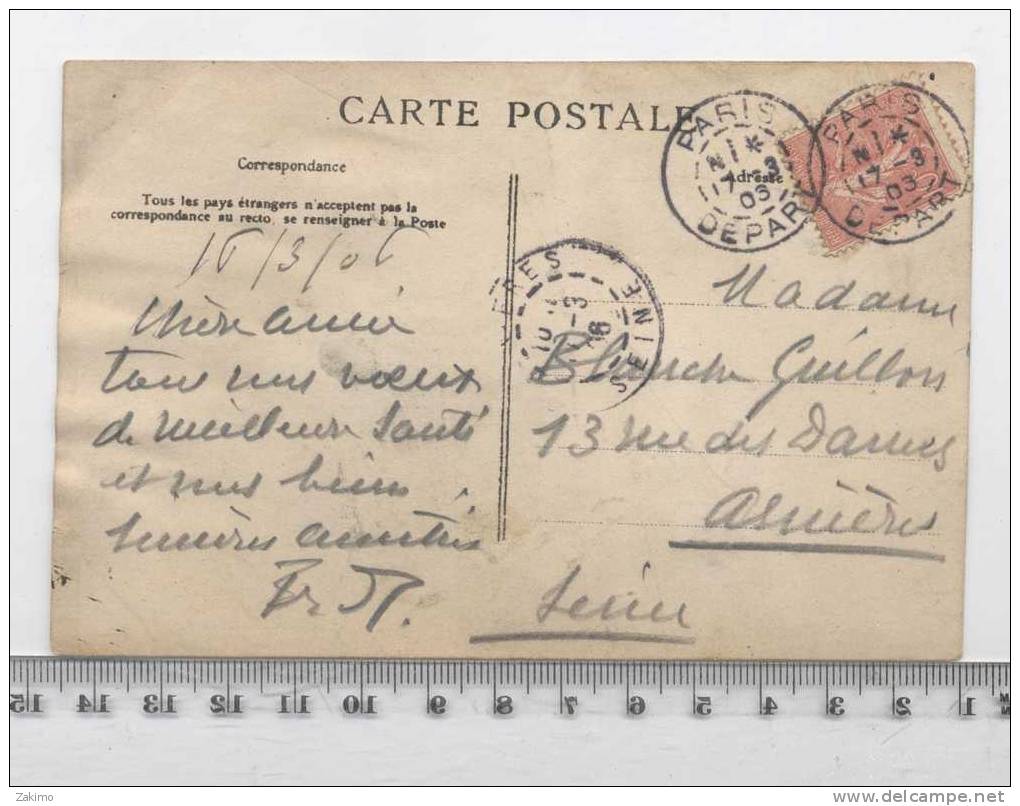 CARTE POSTALE
Correspondance
Tous les pays étrangers n'acceptent pas la
correspondance au recto, se renseigner à la Poste
Adresse
PARIS
17 -3
DEPART
PARIS
17 -3
DEPART
SEINE
16/3/06
Chère amie
tous nos vœux
de meilleure santé
et nos bien
sincères amitiés
Madame
Blanche Guillon
13 rue des Dames
Asnières
Seine
15 14 13 12 11 10 9 8 7 6 5 4 3 2 1
Zakimo
www.delcampe.net